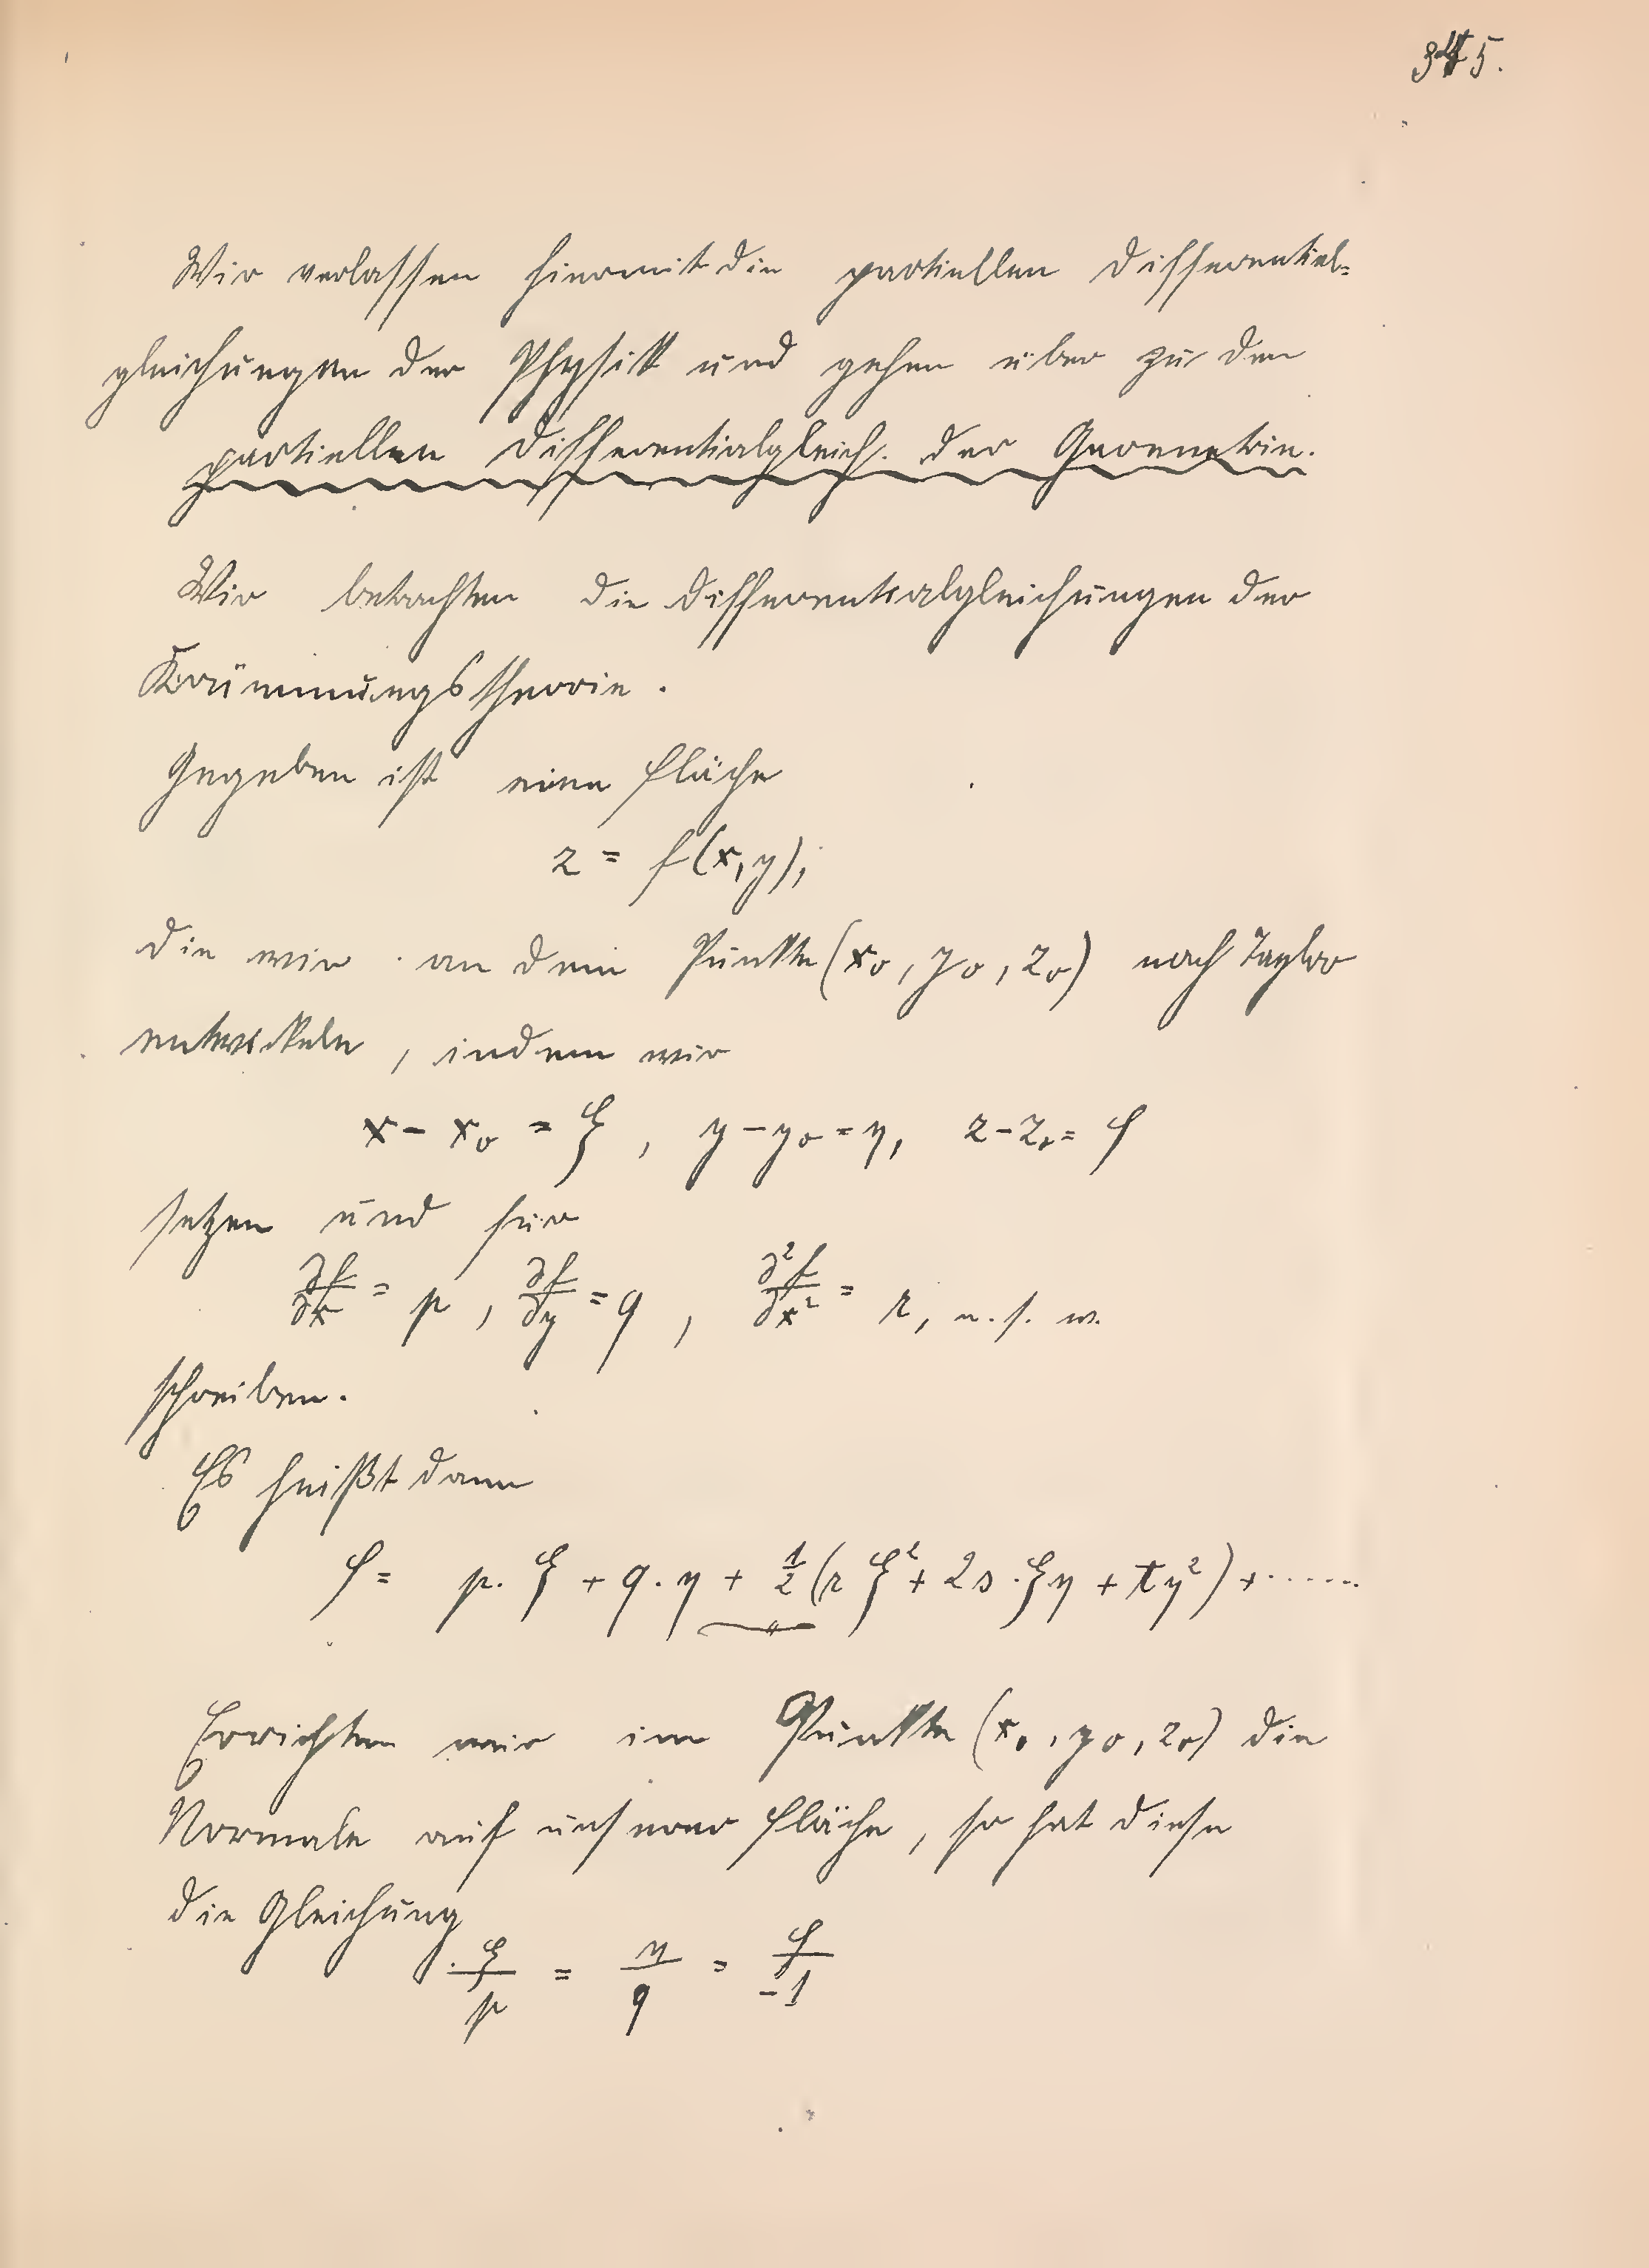 345.
Wir verlassen hiermit die partiellen Differential-
gleichungen der Physik und gehen über zu den
partiellen Differentialgleich. der Geometrie.
Wir betrachten die Differentialgleichungen der
Krümmungstheorie.
Gegeben ist eine Fläche
z = f(x,y),
die wir an dem Punkte (x₀, y₀, z₀) nach Taylor
entwickeln, indem wir
x − x₀ = ξ, y − y₀ = η, z − z₀ = ζ
setzen und für
∂f/∂x = p, ∂f/∂y = q, ∂²f/∂x² = r, u. s. w.
schreiben.
Es heißt dann
ζ = p. ξ + q. η + 1/2 (r ξ² + 2s. ξη + tη²) + ......
Errichten wir im Punkte (x₀, y₀, z₀) die
Normale auf unserer Fläche, so hat diese
die Gleichung
ξ/p = η/q = ζ/−1